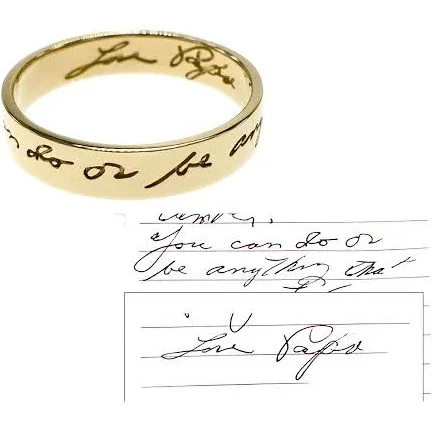 Love Papa
can do or be any
"You can do or
be anything that
Love Papa